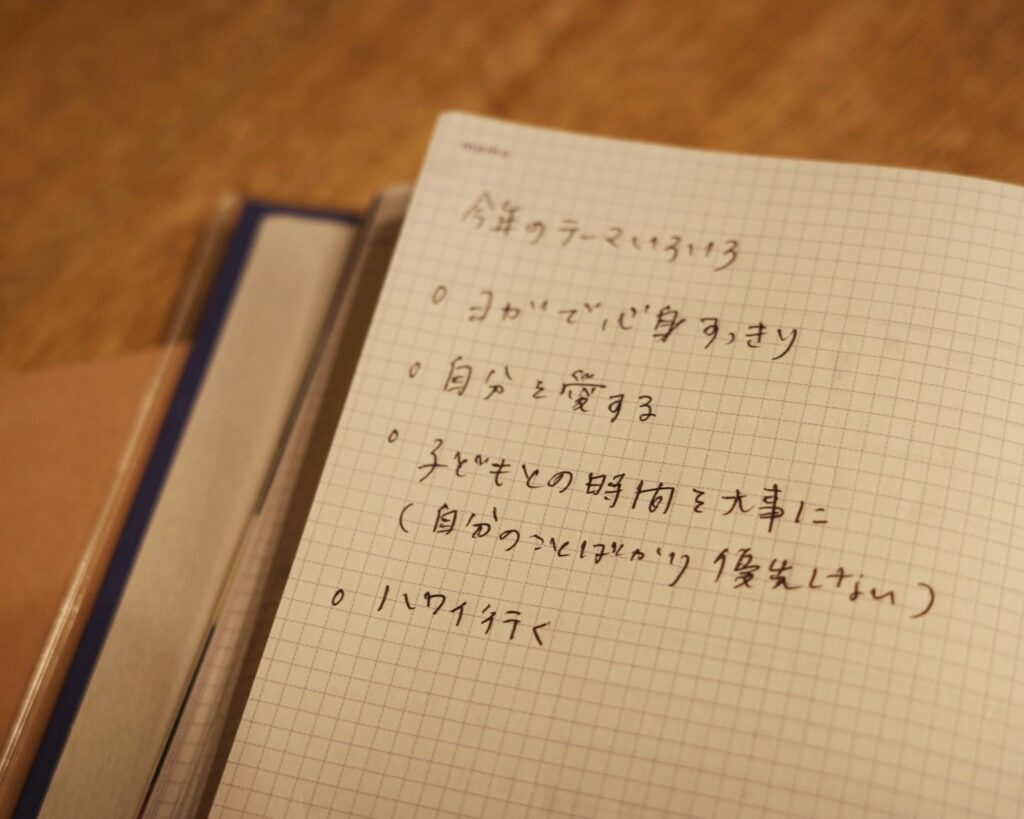 memo
今年のテーマいろいろ
○ ヨガで心身すっきり
○ 自分を愛する
○ 子どもとの時間を大事に
(自分のことばかり優先しない)
○ ハワイ行く